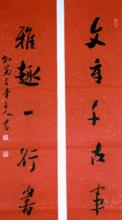 文章千古事
雅趣一行書